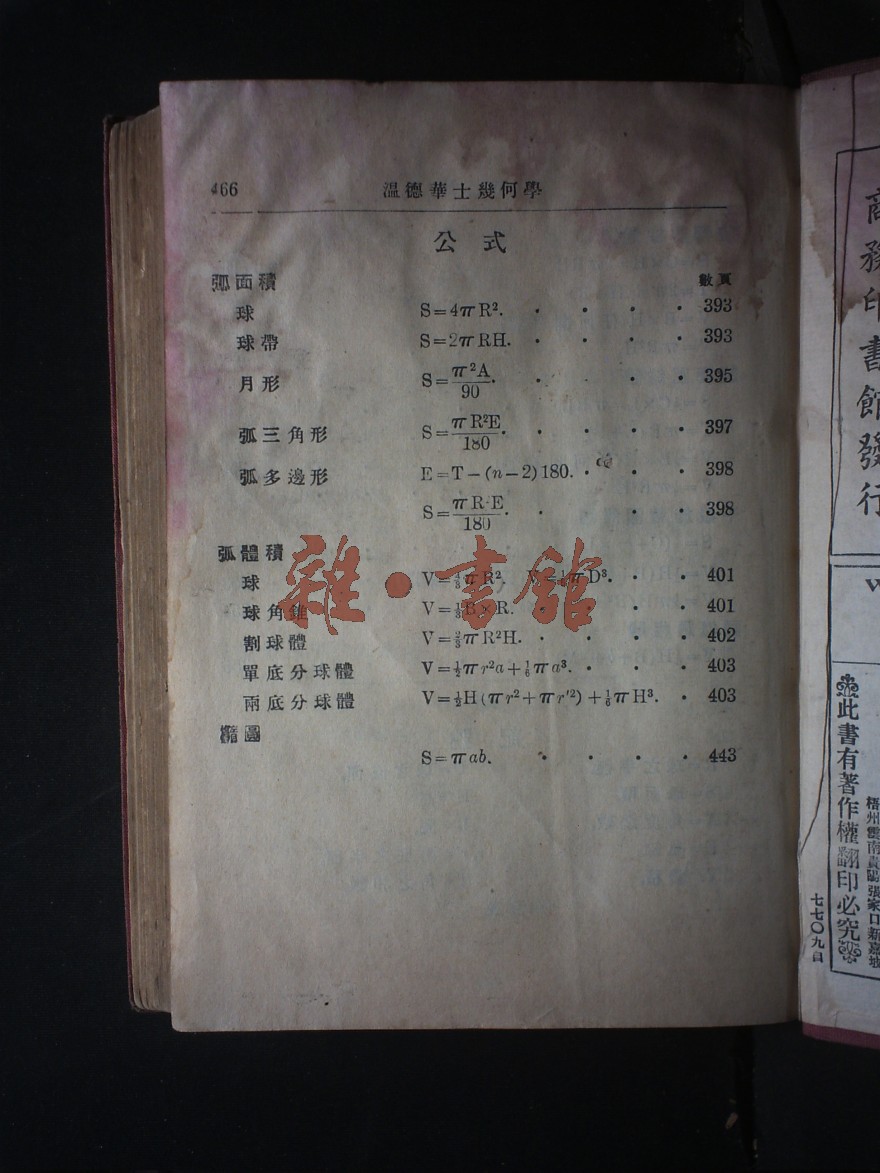 466 溫德華士幾何學
公式
弧面積 數頁
球 S=4πR². 393
球帶 S=2πRH. 393
月形 S=π²A/90. 395
弧三角形 S=πR²E/180. 397
弧多邊形 E=T-(n-2)180. 398
S=πR·E/180. 398
弧體積
球 V=4/3πR². V=1/6πD³. 401
球角錐 V=1/3B×R. 401
割球體 V=2/3πR²H. 402
單底分球體 V=1/2πr²a+1/6πa³. 403
兩底分球體 V=1/2H(πr²+πr'²)+1/6πH³. 403
橢圓
S=πab. 443
雜·書館
商務印書館發行
W
此書有著作權翻印必究
梧州雲南貴陽張家口新嘉坡
七七〇九自